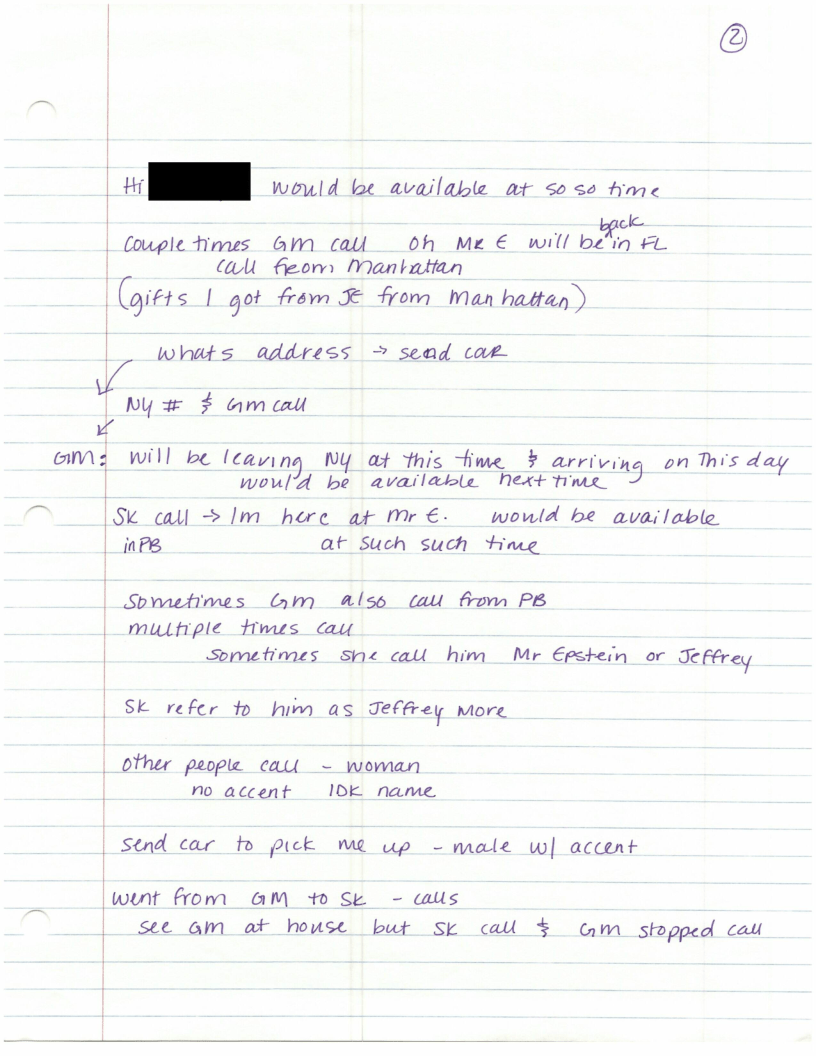 2
Hi would be available at so so time
back
Couple times GM call oh MR E will be in FL
call from Manhattan
(gifts I got from JE from Manhattan)
whats address → send car
NY # & GM call
GM: will be leaving NY at this time & arriving on This day
would be available next time
SK call → Im here at Mr E. would be available
in PB at such such time
Sometimes GM also call from PB
multiple times call
sometimes she call him Mr Epstein or Jeffrey
SK refer to him as Jeffrey more
other people call - woman
no accent IDK name
send car to pick me up - male w/ accent
went from GM to SK - calls
see GM at house but SK call & GM stopped call